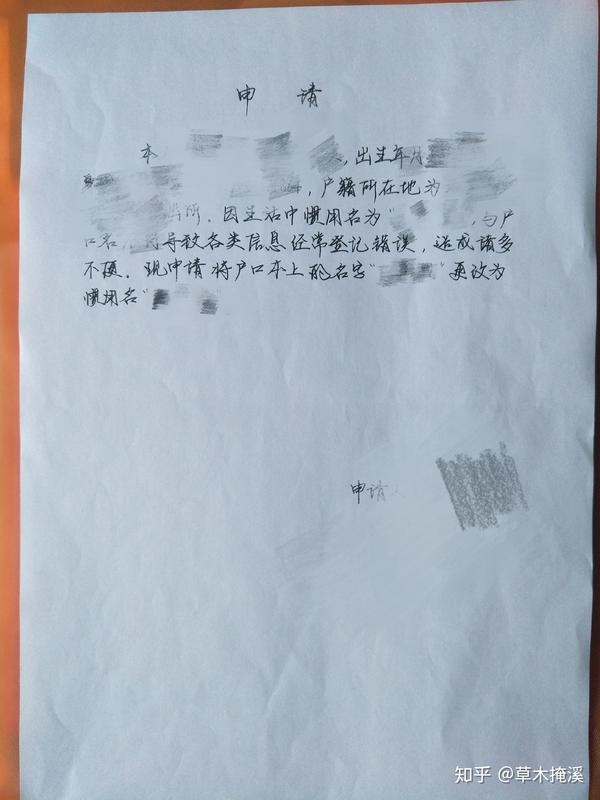 申 请
本 ，出生年月
，户籍所在地为
因生活中惯用名为“ ，与户
口名 导致各类信息经常登记错误，造成诸多
不便。现申请将户口本上的名字“ ”更改为
惯用名“ ”
申请人
知乎 @草木掩溪